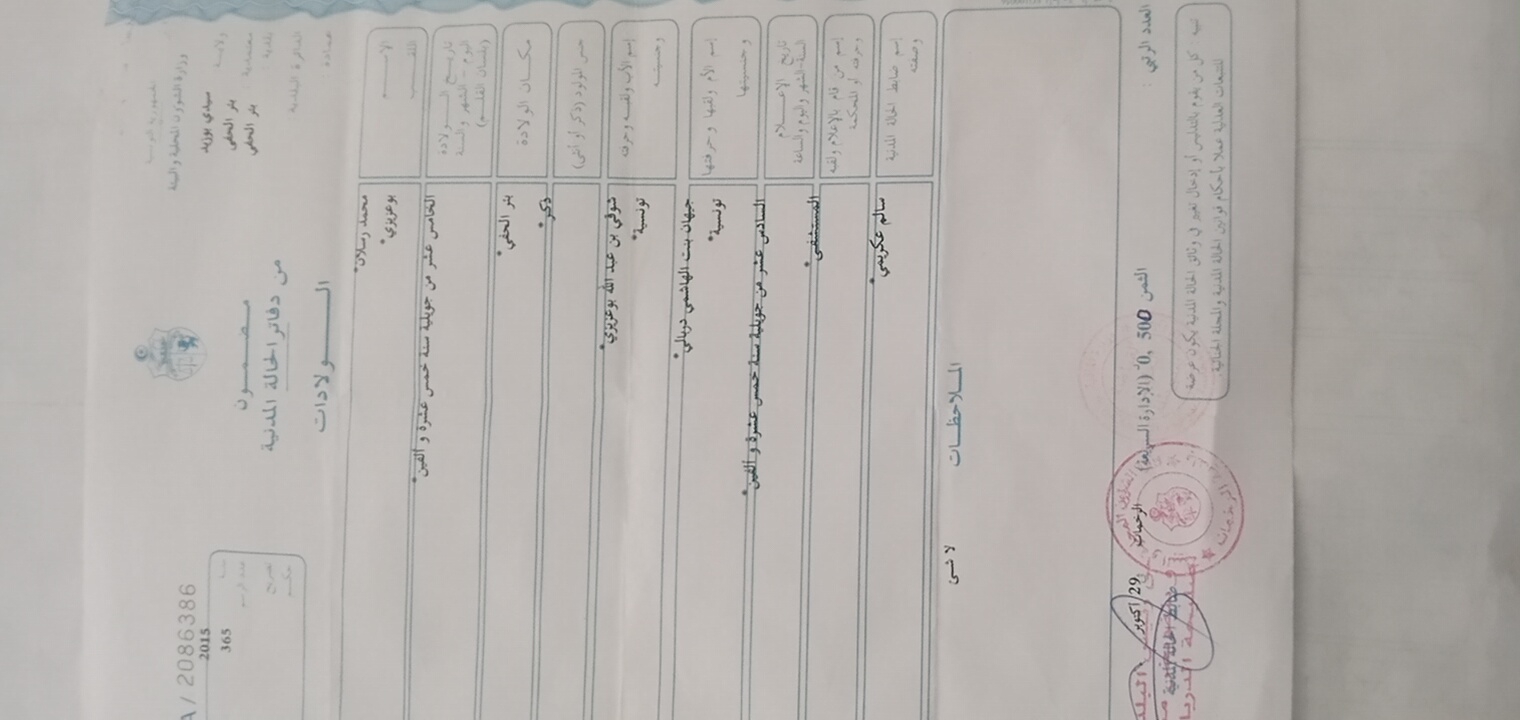 الجمهورية التونسية
وزارة الشؤون المحلية والبيئة
ولاية : سيدي بوزيد
معتمدية : بئر الحفي
بلدية : بئر الحفي
الدائرة البلدية
عمادة :
مضمون
من دفاتر الحالة المدنية
الولادات
A / 2086386
2015
عدد الرسم 365
الإسم محمد رسلان*
اللقب بوعزيزي*
تاريخ الولادة
اليوم - الشهر والسنة
(بلسان القلم)
الخامس عشر من جويلية سنة خمس عشرة و ألفين*
مكان الولادة بئر الحفي*
جنس المولود (ذكر أو أنثى) ذكر*
إسم الأب ولقبه وحرفته شوقي بن عبد الله بوعزيزي*
وجنسيته تونسية*
إسم الأم ولقبها وحرفتها جيهان بنت الهاشمي دربالي*
وجنسيتها تونسية*
تاريخ الإعلام
السنة-الشهر واليوم والساعة
السادس عشر من جويلية سنة خمس عشرة و ألفين*
إسم من قام بالإعلام ولقبه
وحرفته أو المحكمة
المستشفى*
إسم ضابط الحالة المدنية
وصفته
سالم عكريمي*
الملاحظات
لا شئ
العدد الرتبي :
الثمن 0,500 (الإدارة السريعة)
الرخمات في 29 أكتوبر
ضابط الحالة المدنية
تنبيه : كل من يقوم بالتدليس أو إدخال تغيير في وثائق الحالة المدنية يكون عرضة
للتتبعات العدلية عملا بأحكام قوانين الحالة المدنية والمجلة الجنائية.